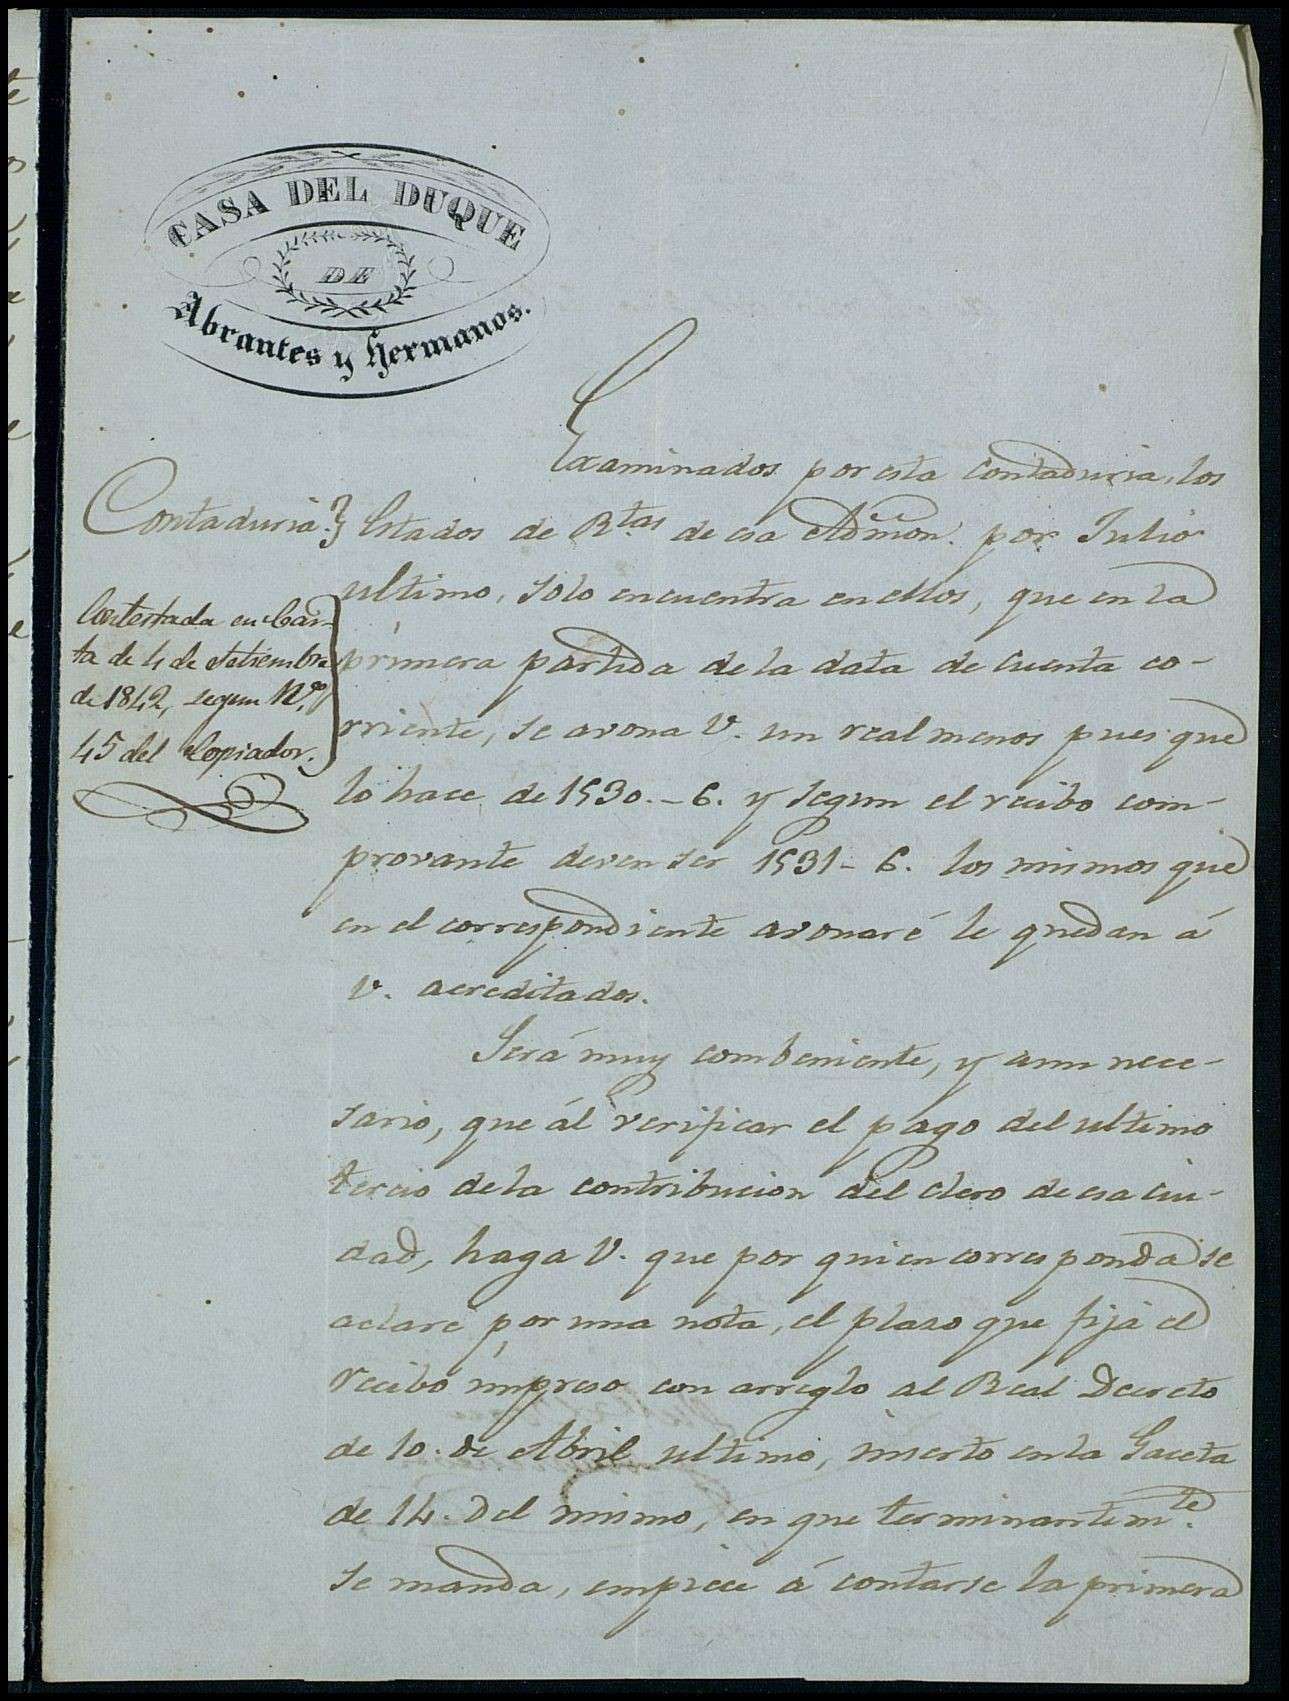 CASA DEL DUQUE
DE
Abrantes y Hermanos.
Contaduria.
Contestada en Car-
ta de 4 de Setiembre
de 1842, segun N.º
45 del Copiador.
Examinados por esta contaduria, los
Estados de R.tas de esa Admon. por Julio
ultimo, solo encuentra en ellos, que en la
primera partida de la data de cuenta co-
rriente, se avona V. un real menos pues que
lo hace de 1530.-6. y segun el recibo com-
provante deven ser 1531-6. los mismos que
en el correspondiente avonaré le quedan á
V. acreditados.
Será muy combeniente, y aun nece-
sario, que ál verificar el pago del ultimo
tercio de la contribucion del clero de esa ciu-
dad, haga V. que por quien corresponda se
aclare por una nota, el plazo que fija el
recibo impreso con arreglo al Real Decreto
de 10. de Abril ultimo, inserto en la Gaceta
de 14. del mismo, en que terminantem.te
se manda, empiece á contarse la primera